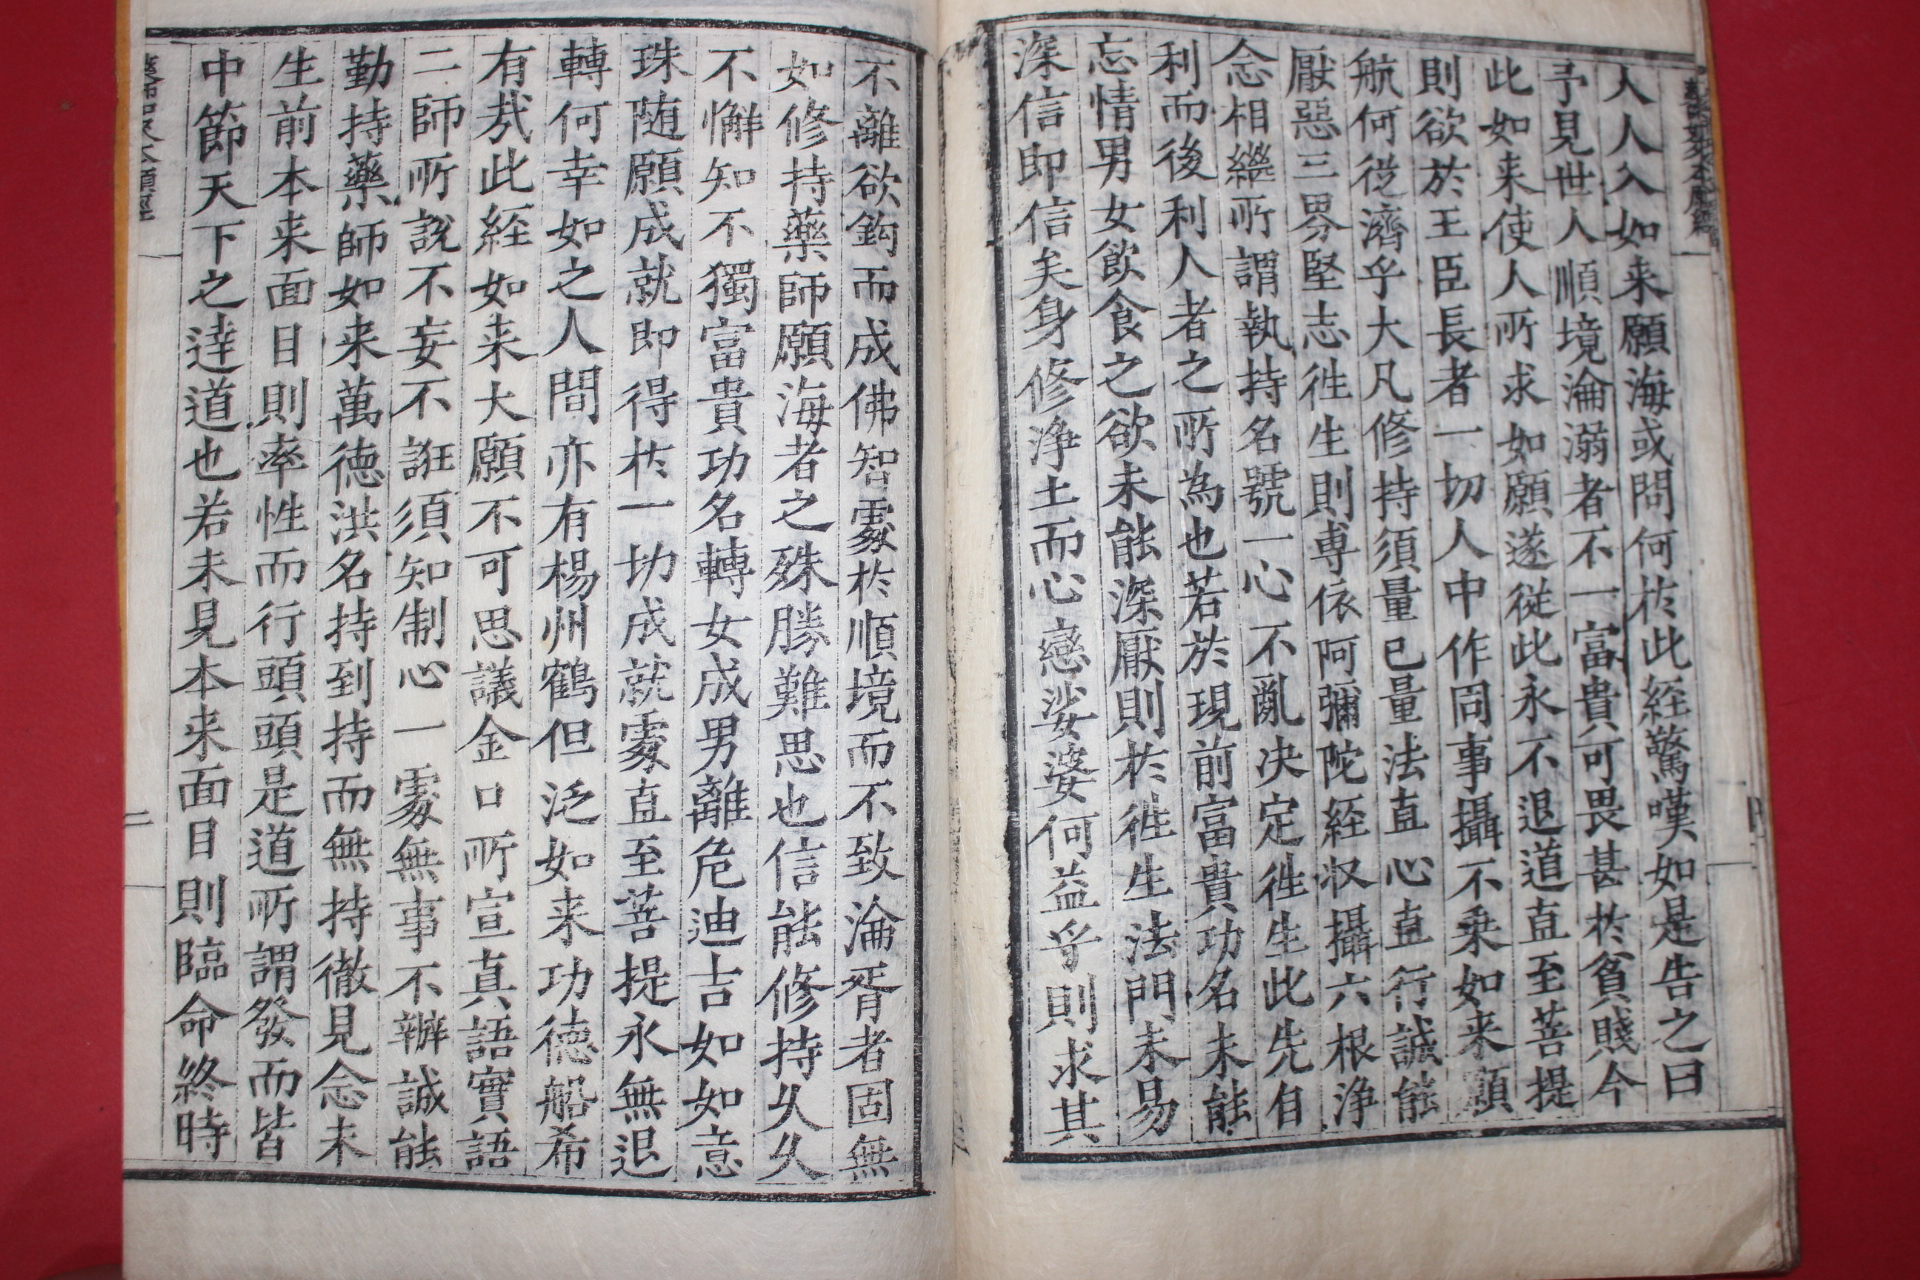 人人入如来願海或問何扵此経驚嘆如是告之曰
予見世人順境淪溺者不一富貴可畏甚扵貧賤今
此如来使人所求如願遂從此永不退道直至菩提
則欲於王臣長者一切人中作同事攝不乘如来願
航何従濟乎大凡修持須量已量法直心直行誠能
厭惡三界堅志徃生則専依阿彌陀経収攝六根浄
念相繼所謂執持名號一心不亂决定徃生此先自
利而後利人者之所為也若於現前富貴功名未能
忘情男女飲食之欲未能深厭則扵徃生法門未易
深信即信矣身修浄土而心戀娑婆何益乎則求其
不離欲鈎而成佛智䖏扵順境而不致淪胥者固無
如修持藥師願海者之殊勝難思也信能修持久久
不懈知不獨富貴功名轉女成男離危迪吉如如意
珠随願成就即得扵一切成就䖏直至菩提永無退
轉何幸如之人間亦有楊州鶴但泛如来功徳船希
有㢤此経如来大願不可思議金口所宣真語實語
二師所說不妄不誑須知制心一䖏無事不辦誠能
勤持藥師如来萬徳洪名持到持而無持徹見念未
生前本来面目則率性而行頭頭是道所謂發而皆
中節天下之達道也若未見本来面目則臨命終時
藥師如来本願經
二